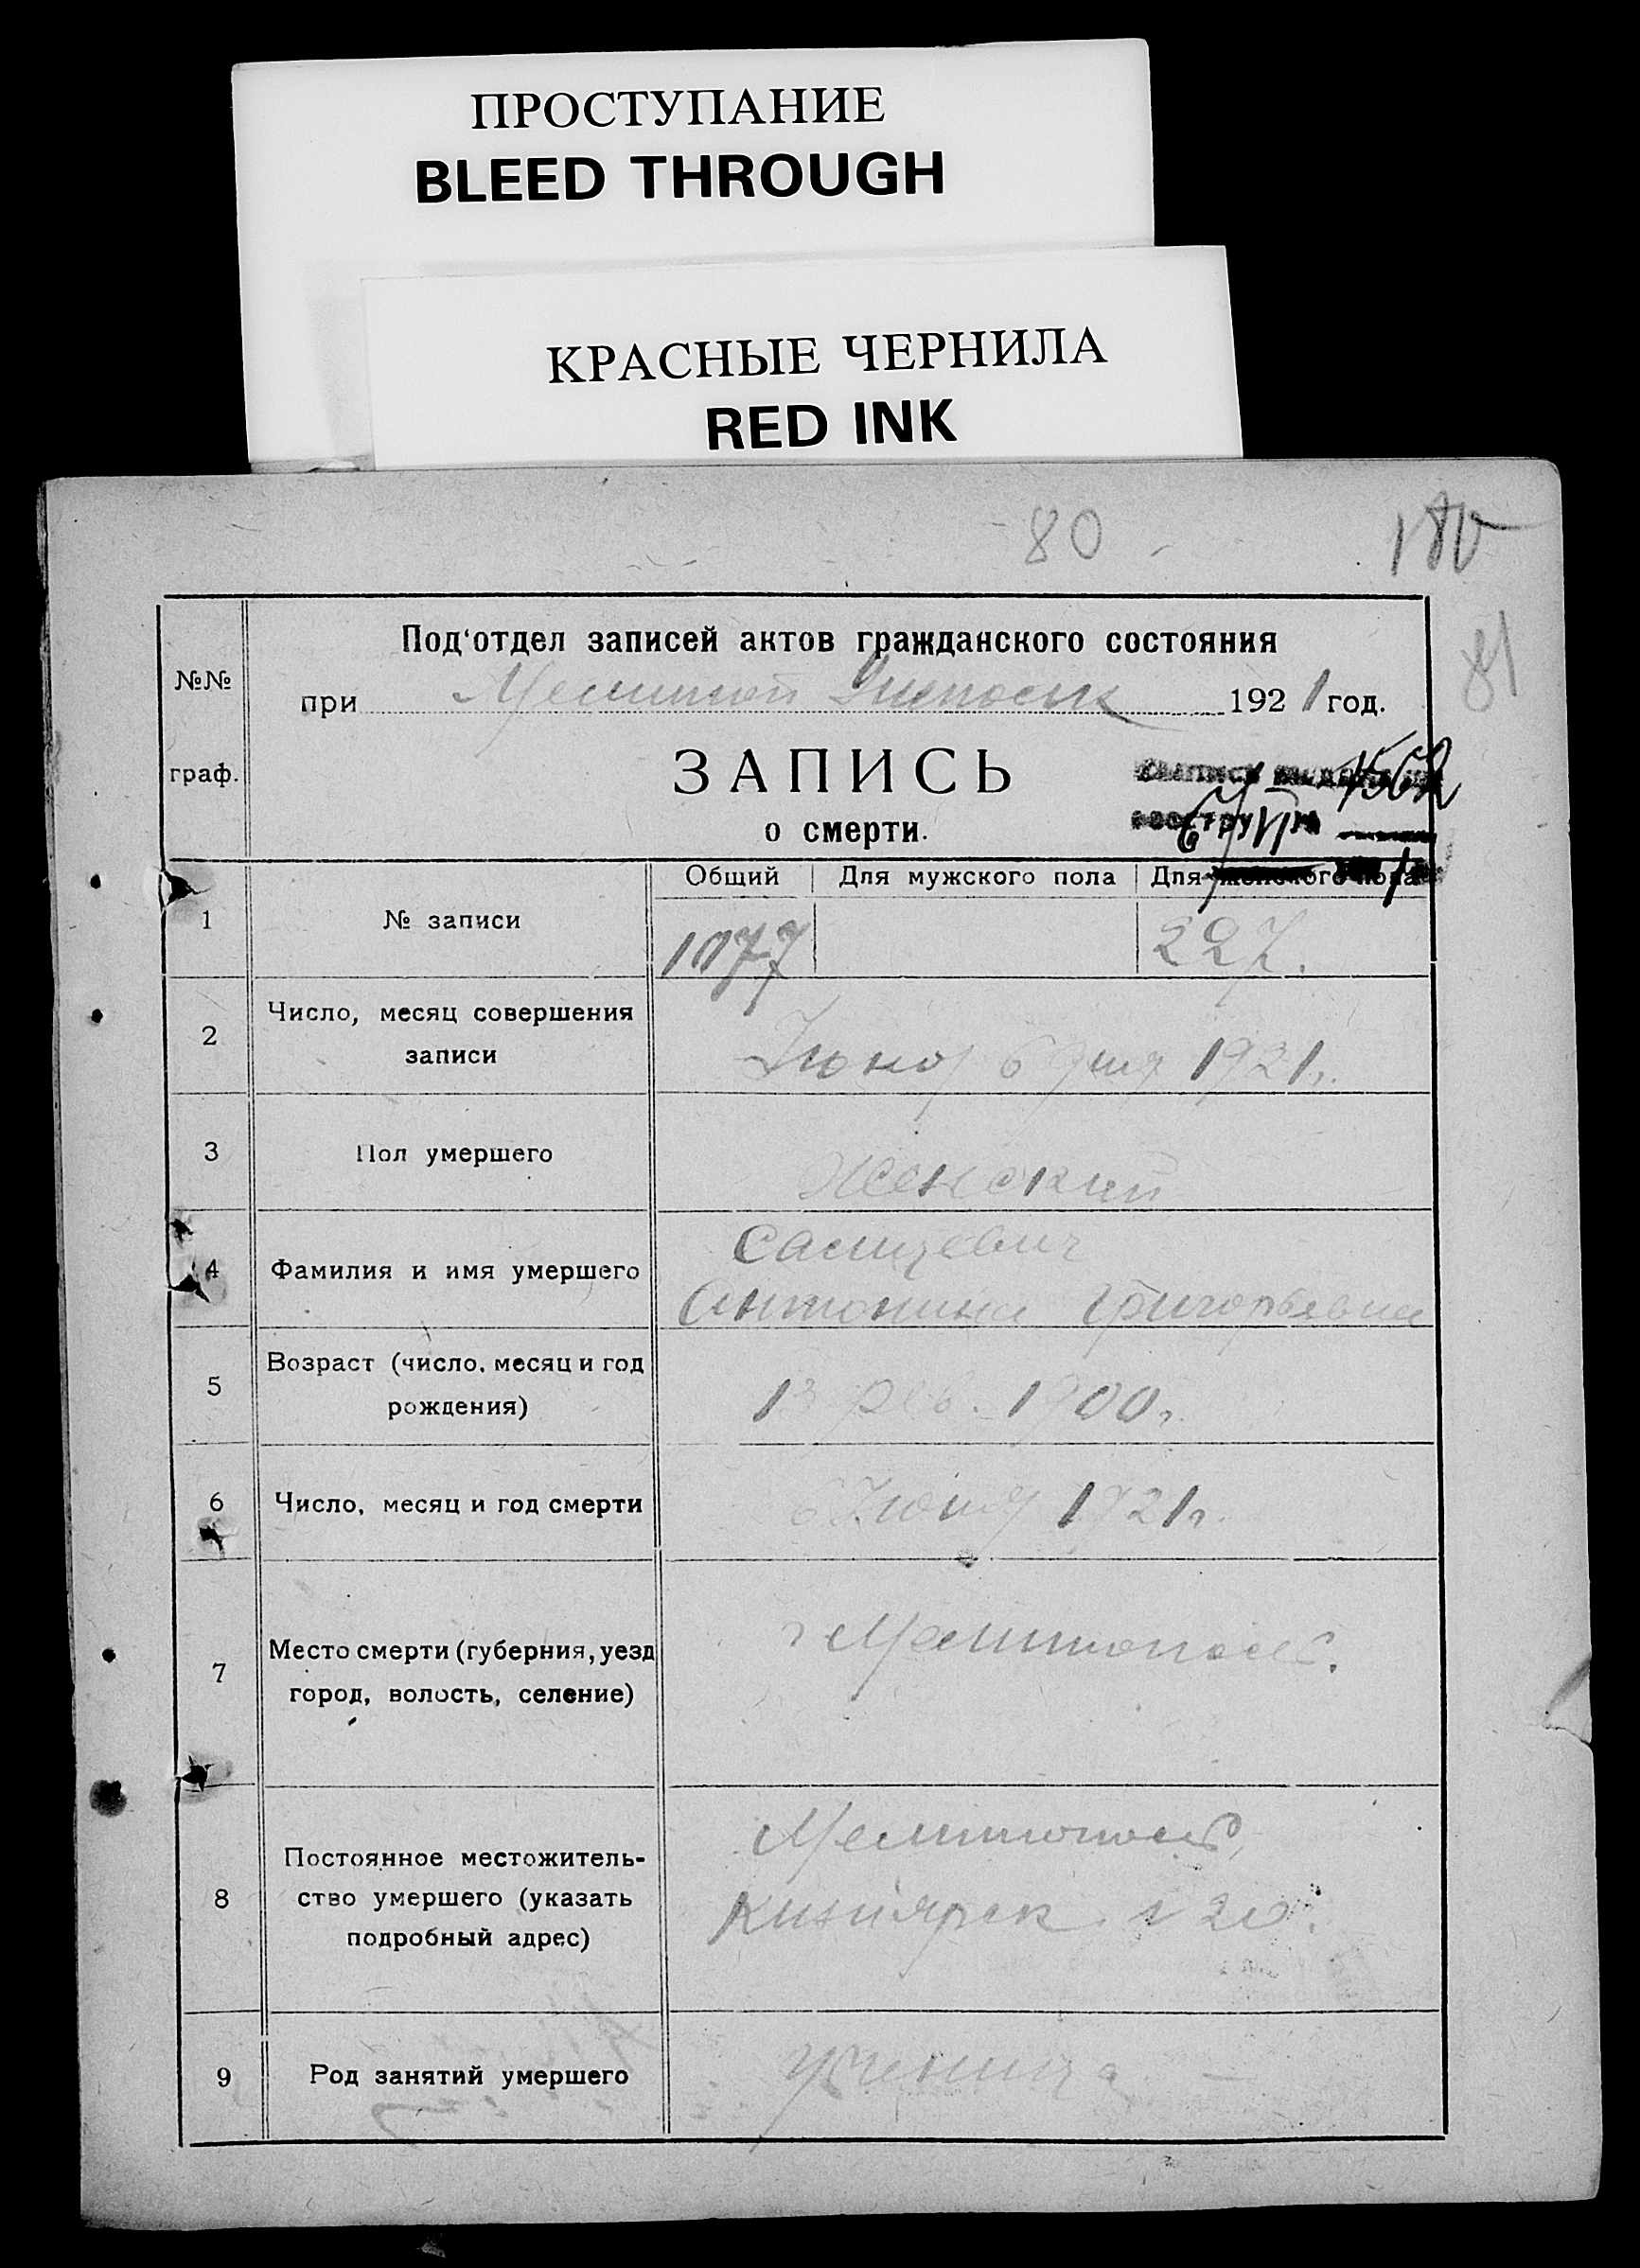 ПРОСТУПАНИЕ
BLEED THROUGH
КРАСНЫЕ ЧЕРНИЛА
RED INK
80
180
81
№№
граф.
Под'отдел записей актов гражданского состояния
при 1921 год.
ЗАПИСЬ
о смерти.
Общий Для мужского пола Для женского пола
1 № записи 1077 227.
2 Число, месяц совершения
записи
Июня 6 дня 1921 г.
3 Пол умершего Женский
4 Фамилия и имя умершего
Антонина Григорьевна
5 Возраст (число, месяц и год
рождения)
13 1900 г.
6 Число, месяц и год смерти 6 Июня 1921 г.
7 Место смерти (губерния, уезд
город, волость, селение)
г Мелитополь.
8 Постоянное местожитель-
ство умершего (указать
подробный адрес)
Мелитополь,
Кизиярск 20.
9 Род занятий умершего ученица